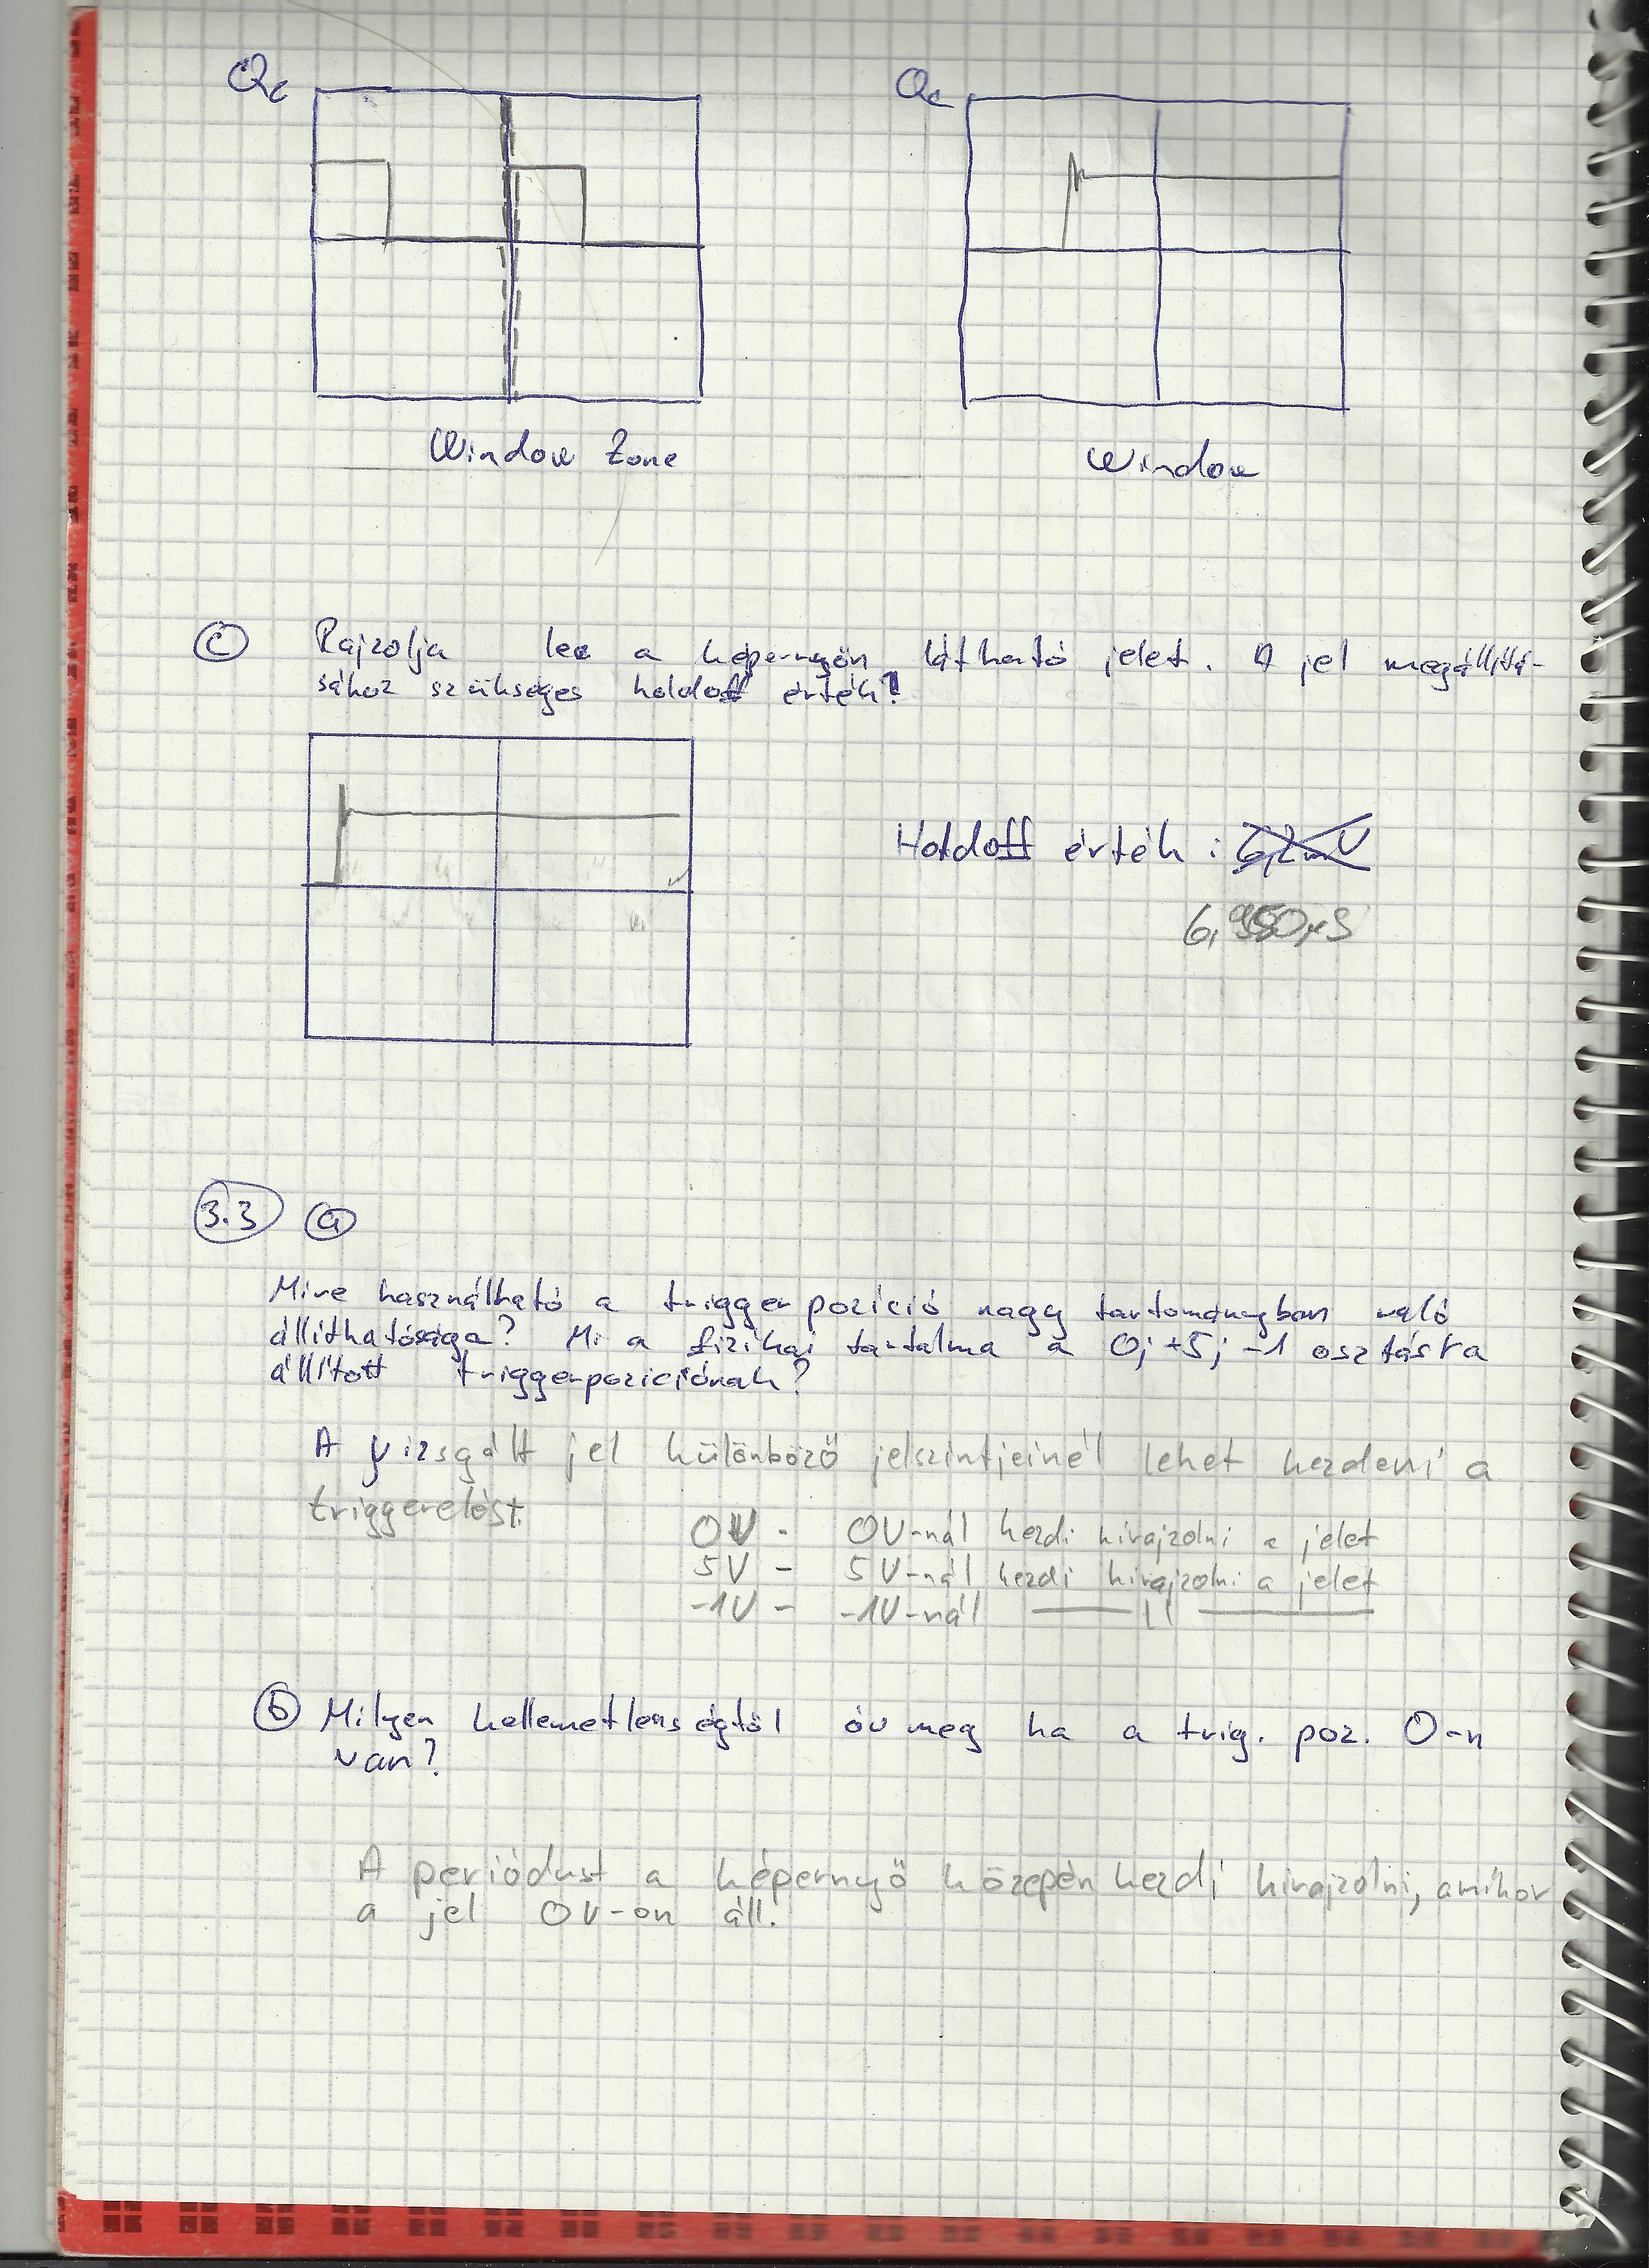 Qc Qc
Window Zone Window
c Rajzolja le a képernyőn látható jelet. A jel megállítá-
sához szükséges holdoff érték?
Holdoff érték : 6,2mV
6,950µS
3.3 a
Mire használható a triggerpozíció nagy tartományban való
állíthatósága? Mi a fizikai tartalma a 0; +5; -1 osztásra
állított triggerpozíciónak?
A vizsgált jel különböző jelszintjeinél lehet kezdeni a
triggerelést.
0V - 0V-nál kezdi kirajzolni a jelet
5V - 5V-nál kezdi kirajzolni a jelet
-1V - -1V-nál —— 11 ——
b Milyen kellemetlenségtől óv meg ha a trig. poz. 0-n
van?
A periódust a képernyő közepén kezdi kirajzolni, amikor
a jel 0V-on áll.